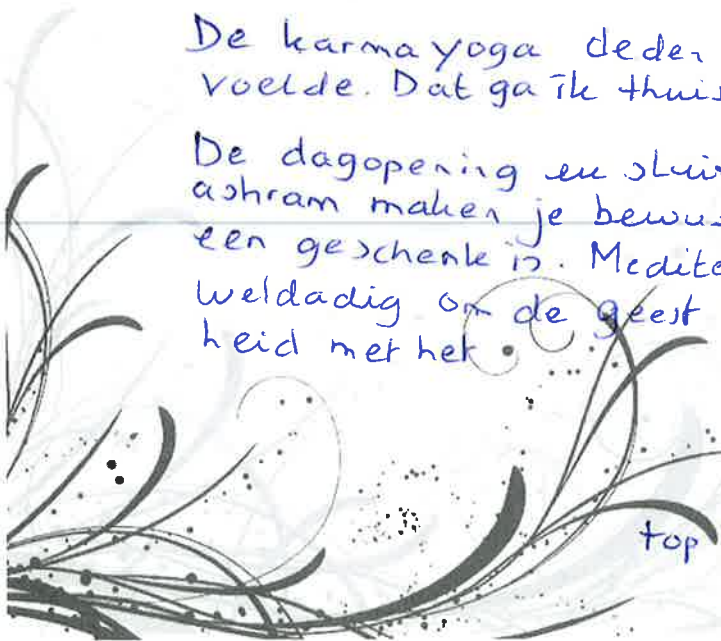 De karma yoga deden
voelde. Dat ga ik thuis
De dagopening en sluit
ashram maken je bewus
een geschenk is. Medite
weldadig om de geest
heid met het
top